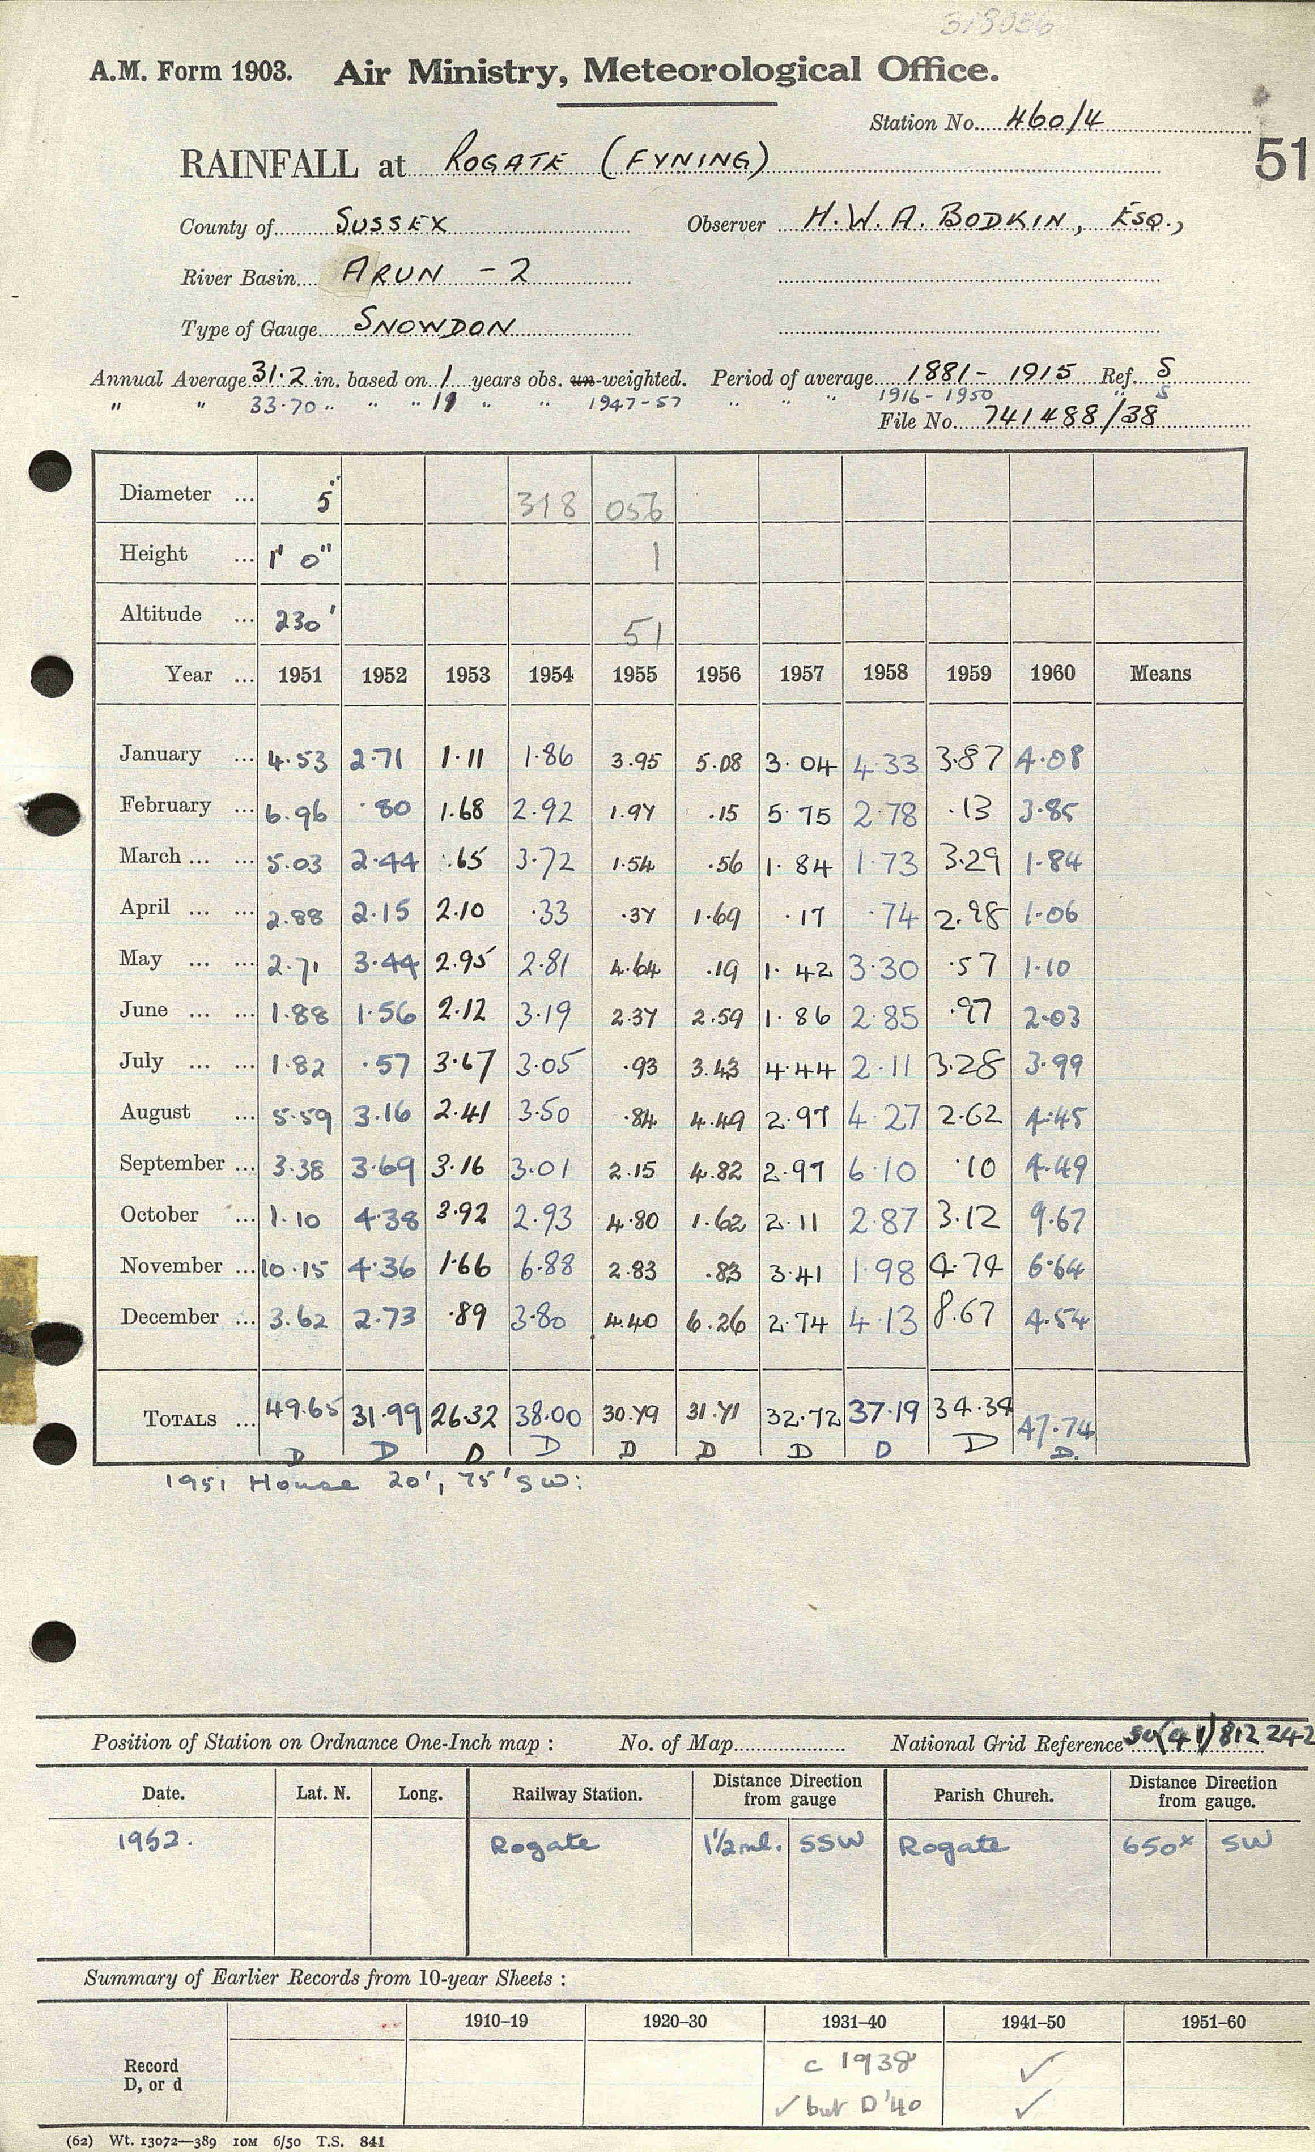 318056
A.M. Form 1903. Air Ministry, Meteorological Office.
Station No. 460/4
51
RAINFALL at ROGATE (FYNING)
County of SUSSEX Observer H.W.A. BODKIN, ESQ.,
River Basin ARUN - 2
Type of Gauge SNOWDON
Annual Average 31.2 in. based on 1 years obs. un-weighted. Period of average 1881 - 1915 Ref. S
" " 33.70 " " " 11 " " 1947-57 " " " 1916-1950 " S
File No. 741488/38
Diameter ... 5" 318 056
Height ... 1' 0" 1
Altitude ... 230' 51
Year ... 1951 1952 1953 1954 1955 1956 1957 1958 1959 1960 Means
January ... 4.53 2.71 1.11 1.86 3.95 5.08 3.04 4.33 3.87 4.08
February ... 6.96 .80 1.68 2.92 1.97 .15 5.75 2.78 .13 3.85
March ... ... 5.03 2.44 .65 3.72 1.54 .56 1.84 1.73 3.29 1.84
April ... ... 2.88 2.15 2.10 .33 .37 1.69 .17 .74 2.98 1.06
May ... ... 2.71 3.44 2.95 2.81 4.64 .19 1.42 3.30 .57 1.10
June ... ... 1.88 1.56 2.12 3.19 2.37 2.59 1.86 2.85 .97 2.03
July ... ... 1.82 .57 3.67 3.05 .93 3.43 4.44 2.11 3.28 3.99
August ... 5.59 3.16 2.41 3.50 .84 4.49 2.97 4.27 2.62 4.45
September ... 3.38 3.69 3.16 3.01 2.15 4.82 2.97 6.10 .10 4.49
October ... 1.10 4.38 3.92 2.93 4.80 1.62 2.11 2.87 3.12 9.67
November ... 10.15 4.36 1.66 6.88 2.83 .83 3.41 1.98 4.74 6.64
December ... 3.62 2.73 .89 3.80 4.40 6.26 2.74 4.13 8.67 4.54
TOTALS ... 49.65 31.99 26.32 38.00 30.79 31.71 32.72 37.19 34.34 47.74
D D D D D D D D D D.
1951 House 20', 75' SW:
Position of Station on Ordnance One-Inch map : No. of Map National Grid Reference SU(41)812 242
Date. Lat. N. Long. Railway Station. Distance Direction from gauge Parish Church. Distance Direction from gauge.
1952. Rogate 1½ ml. SSW Rogate 650x SW
Summary of Earlier Records from 10-year Sheets :
1910–19 1920–30 1931–40 1941–50 1951–60
Record c 1938 ✓
D, or d ✓ but D '40 ✓
(62) Wt. 13072—389 10M 6/50 T.S. 841